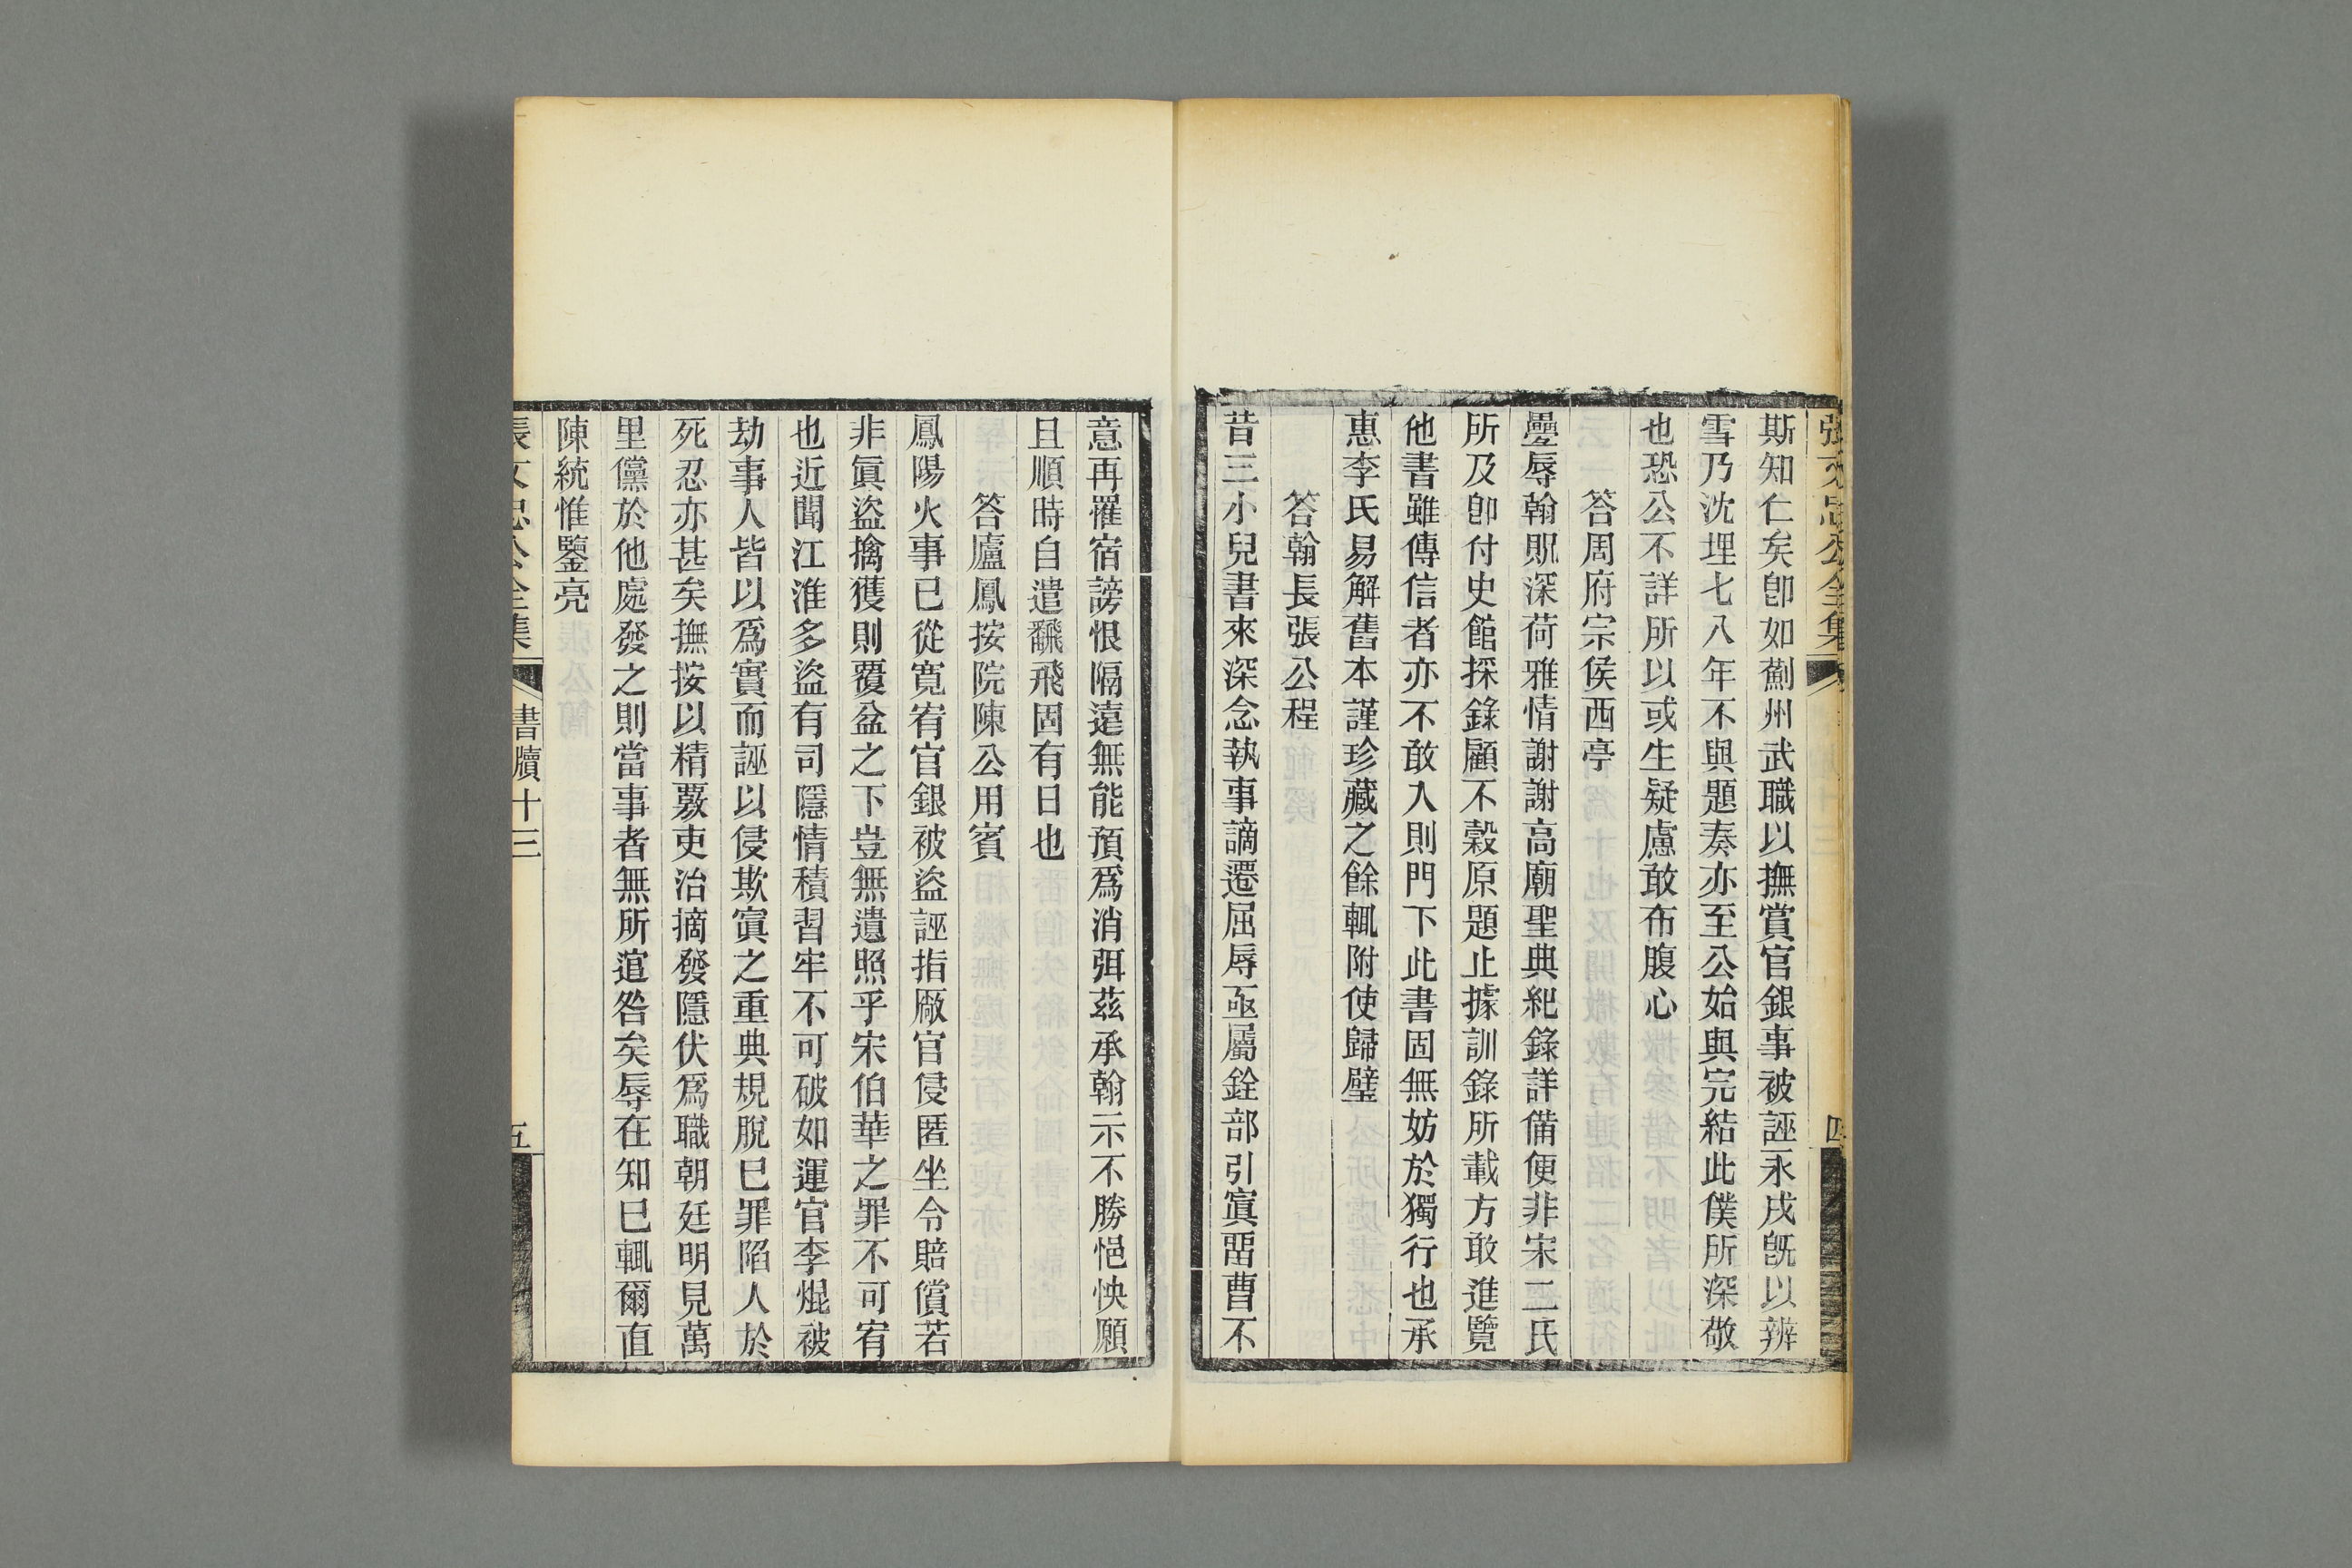 張文忠公全集
四
斯知仁矣卽如薊州武職以撫賞官銀事被誣永戍旣以辨
雪乃沈埋七八年不與題奏亦至公始與完結此僕所深敬
也恐公不詳所以或生疑慮敢布腹心
答周府宗侯西亭
疊辱翰貺深荷雅情謝謝高廟聖典紀錄詳備便非宋二氏
所及卽付史館採錄顧不穀原題止據訓錄所載方敢進覽
他書雖傳信者亦不敢入則門下此書固無妨於獨行也承
惠李氏易解舊本謹珍藏之餘輒附使歸璧
答翰長張公程
昔三小兒書來深念執事謫遷屈辱亟屬銓部引寘畱曹不
意再罹宿謗恨隔遠無能預爲消弭茲承翰示不勝悒怏願
且順時自遣飜飛固有日也
答廬鳳按院陳公用賓
鳳陽火事已從寬宥官銀被盜誣指廠官侵匿坐令賠償若
非眞盜擒獲則覆盆之下豈無遺照乎宋伯華之罪不可宥
也近聞江淮多盜有司隱情積習牢不可破如運官李焜被
劫事人皆以爲實而誣以侵欺寘之重典規脫巳罪陷人於
死忍亦甚矣撫按以精覈吏治摘發隱伏爲職朝廷明見萬
里儻於他處發之則當事者無所逭咎矣辱在知巳輒爾直
陳統惟鑒亮
張文忠公全集
書牘十三
五